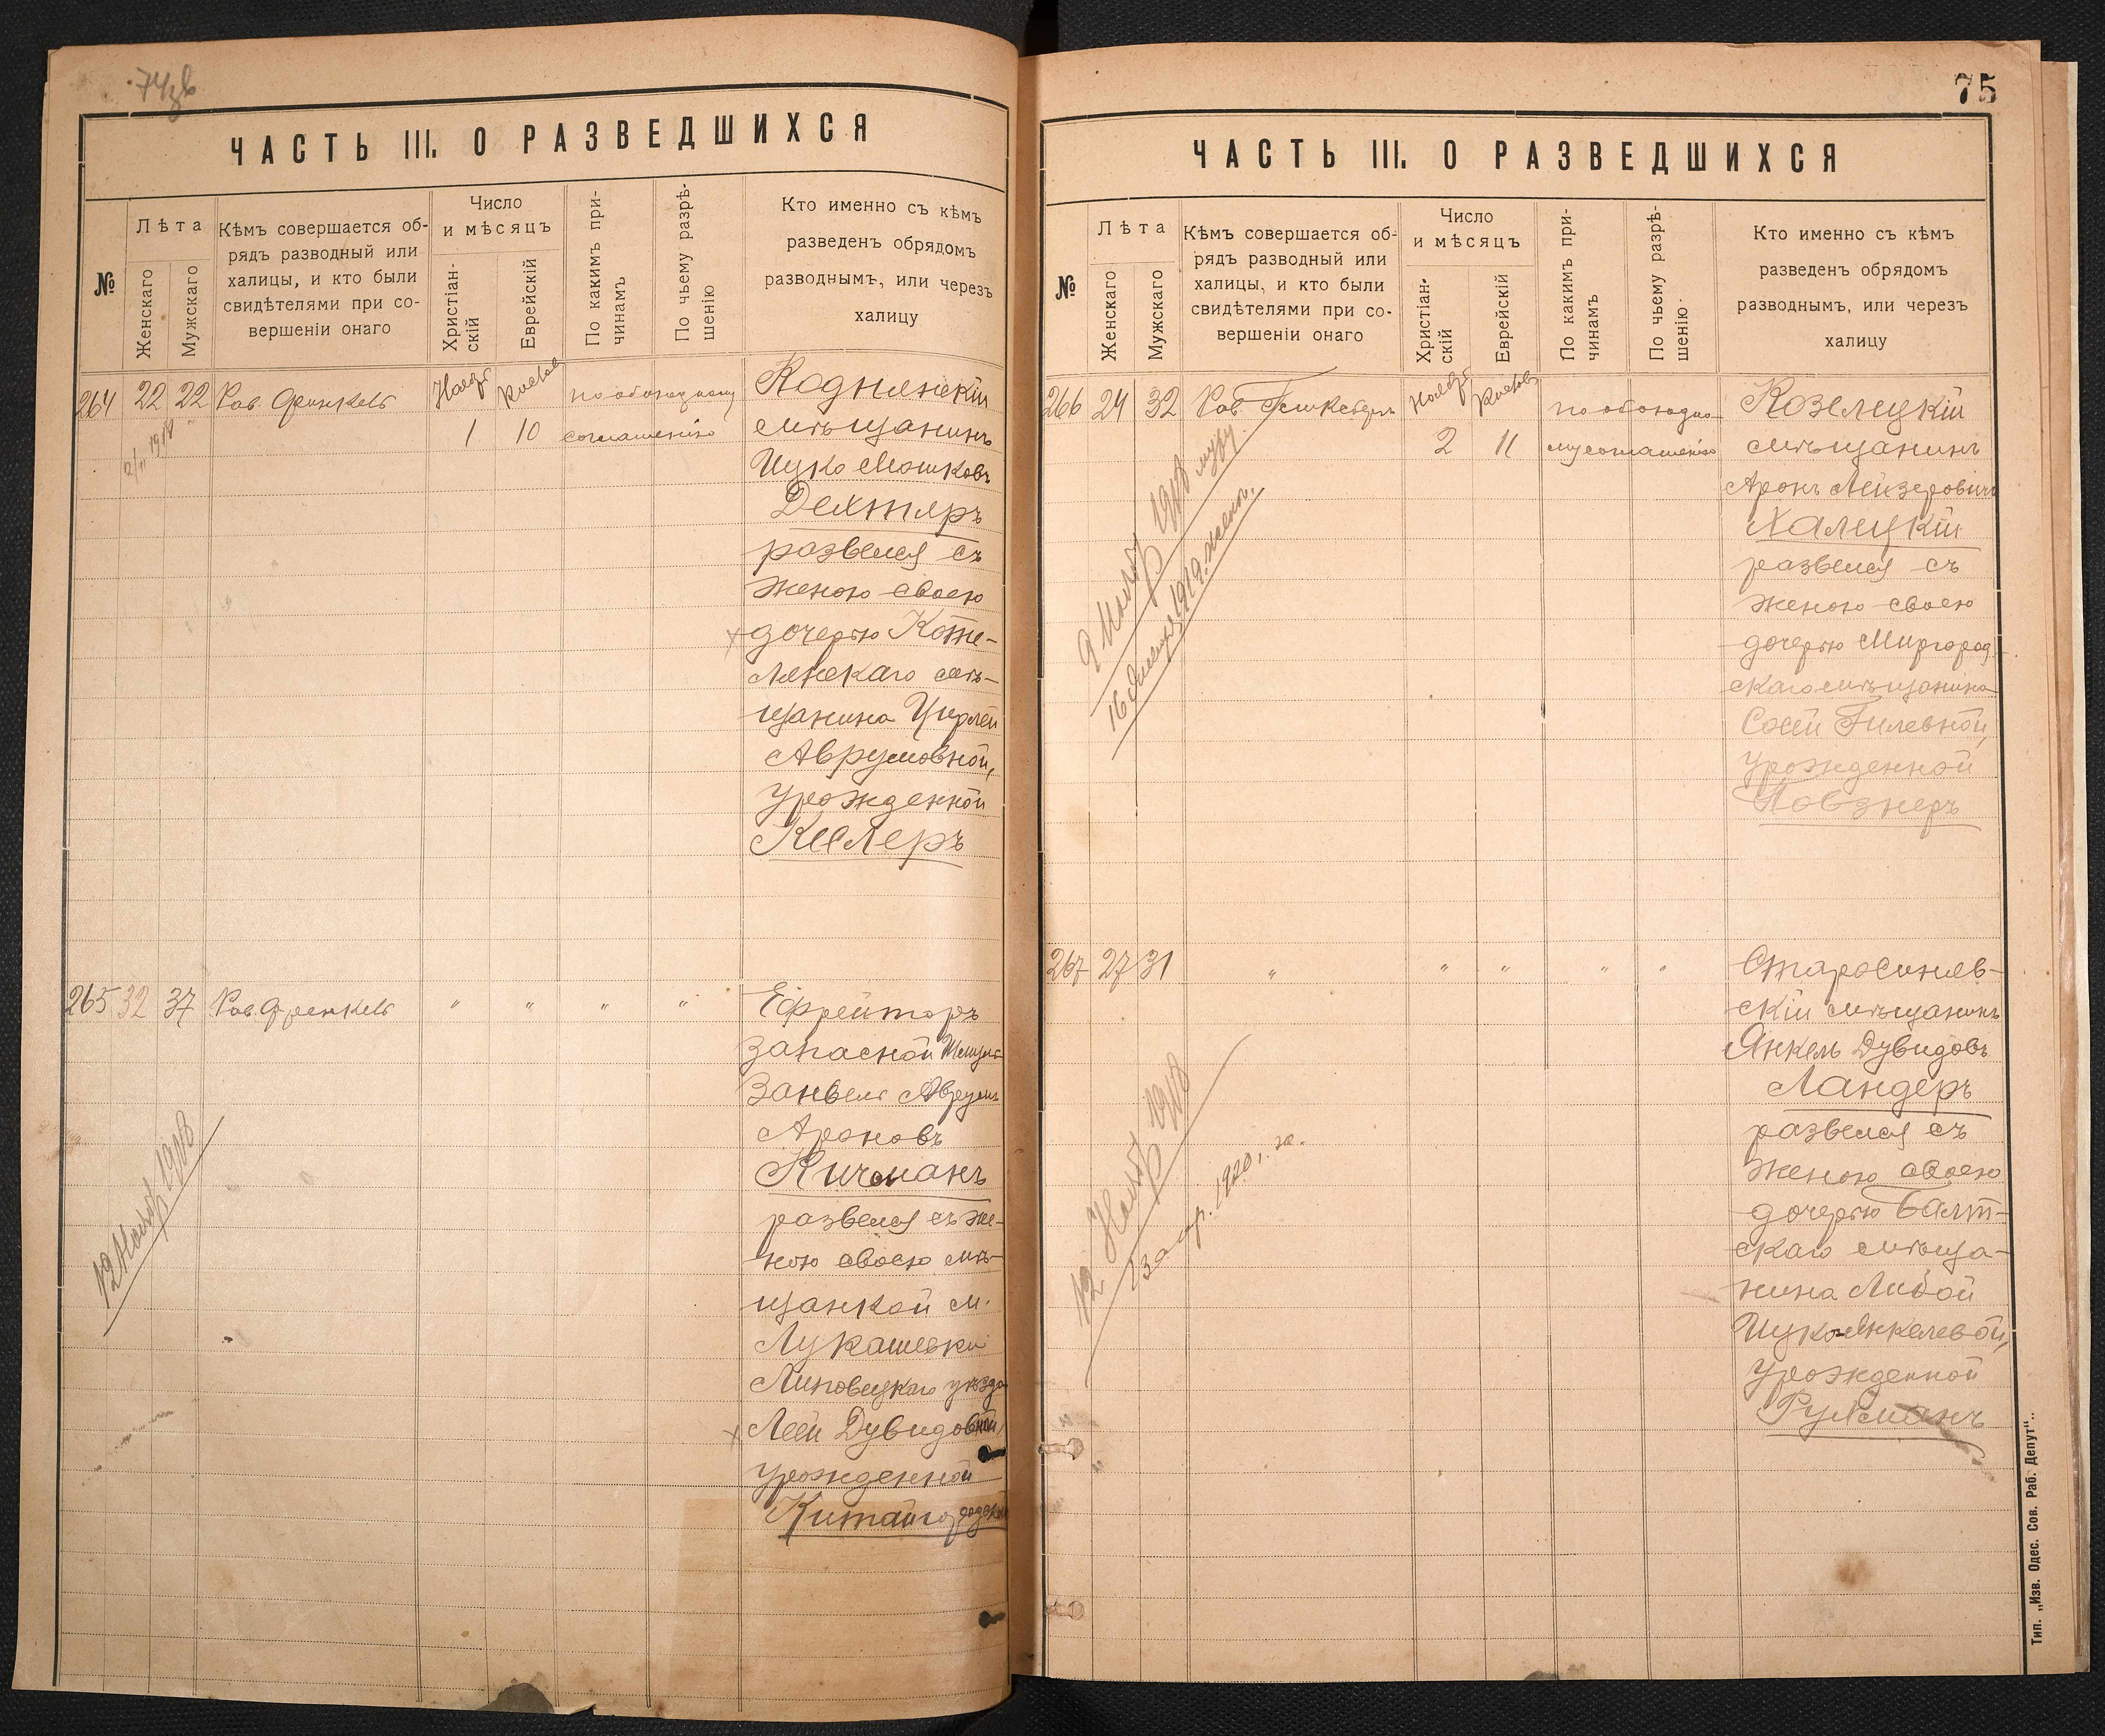 75
ЧАСТЬ III. О РАЗВЕДШИХСЯ
№
Лѣта
Женскаго
Мужскаго
Кѣмъ совершается об-
рядъ разводный или
халицы, и кто были
свидѣтелями при со-
вершеніи онаго
Число
и мѣсяцъ
Христіан-
скій
Еврейскій
По какимъ при-
чинамъ
По чьему разрѣ-
шенію
Кто именно съ кѣмъ
разведенъ обрядомъ
разводнымъ, или черезъ
халицу
264 22 22 Рав. Френкель
1 10
по обоюдному
соглашенію
мѣщанинъ
Ицко Мошковъ
Дехтяръ
развелся съ
женою своею
дочерью Коте-
ленскаго мѣ-
щанина Цирлей
Аврумовной,
урожденной
Кеслеръ
265 32 37 Рав. Френкель " " " "
Ефрейторъ
запасной
Занвель Аврумъ
Ароновъ
Кичманъ
развелся съ же-
ною своею мѣ-
щанкой м.
Лукашевки
Липовецкаго уѣзда
Леей Дувидовной,
урожденной
Китайгородской
12 Нояб 1918
ЧАСТЬ III. О РАЗВЕДШИХСЯ
№
Лѣта
Женскаго
Мужскаго
Кѣмъ совершается об-
рядъ разводный или
халицы, и кто были
свидѣтелями при со-
вершеніи онаго
Число
и мѣсяцъ
Христіан-
скій
Еврейскій
По какимъ при-
чинамъ
По чьему разрѣ-
шенію
Кто именно съ кѣмъ
разведенъ обрядомъ
разводнымъ, или черезъ
халицу
266 24 32 Рав.
2 11
по обоюдно-
му соглашенію
Козелецкій
мѣщанинъ
Аронъ Лейзеровичъ
Халецкій
развелся съ
женою своею
дочерью Миргород-
скаго мѣщанина
Сосей Гилевной,
урожденной
Повзнеръ
9 Нояб 1918 мужу
267 27 31 " " " " "
Старосиняв-
скій мѣщанинъ
Янкель Дувидовъ
Ландеръ
развелся съ
женою своею
дочерью Балт-
скаго мѣща-
нина Либой
Ицко-Янкелевой,
урожденной
Рухманъ
12 Нояб 1918
Тип. „Изв. Одес. Сов. Раб. Депут“.